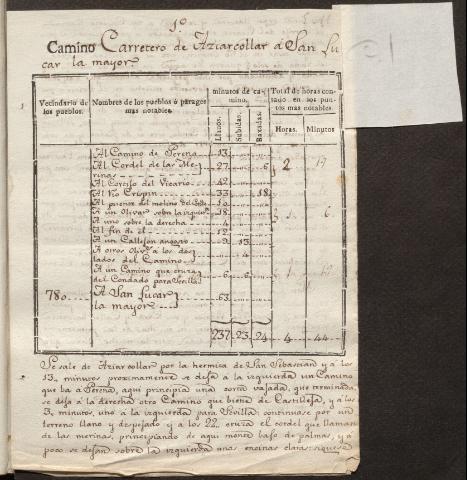 1º
Camino Carretero de Aziarcollar á San Lu
car la mayor
Vecindario de los pueblos. Nombres de los pueblos ó parages mas notables. minutos de camino. Total de horas contado en los puntos mas notables.
Llanos. Subidas. Baxadas. Horas. Minutos
Al Camino de Gerena 13
Al Cordel de las Me 27 6 2 17
rinas
Al Cortijo del Vicario 42
Al Rio Crispin 33 18
Al puente del molino 10
A un Olivar sobre la izquier 18 6
A uno sobre la derecha 4
Al fin de el 12
A un Callejon angosto 9 13
A otros Oliv.s a los dos 4
lados del Camino
A un Camino que cruza 6 6 1 19
del Condado para Sevilla
780 A San Lucar 63
la mayor
237 23 24 4 44
Se sale de Aziarcollar por la hermita de San Sebastian y á los
13, minutos proximamente se deja á la izquierda un Camino
que ba á Gerena, aqui principia una corta vajada, que terminada
se deja á la derecha otro Camino que biene de Castilleja, y á los
3, minutos uno á la izquierda para Sevilla: continuase por un
terreno llano y despejado y á los 22, cruza el cordel que llaman
de las merinas, principiando de aqui monte bajo de palmas, y á
poco se dejan sobre la izquierda unas encinas claras: siguese